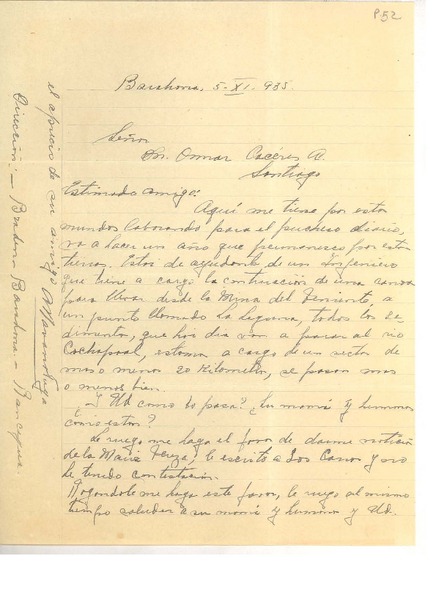 P.52
Barahona, 5-XI-935.
Señor
Dn. Omar Cáceres A.
Santiago
Estimado amigo:
Aquí me tiene por estos
mundos laborando para el puchero diario,
va a hacer un año que permanesco por estas
tierras. Estoy de ayudante de un Ingeniero
que tiene a cargo la continuación de una canoa
para llevar desde la Mina del Teniente, a
un punto llamado La Laguna, todos los se
dimentos, que hoy dia van a parar al rio
Cachapoal, estamos a cargo de un sector de
mas o menos 20 kilometros, se pasan mas
o menos bien.
Y Ud como lo pasa? Su mamá y hermano
como estan?
Le ruego me haga el favor de darme noticias
de la María Tereza, le escribí a Los Canos y no
he tenido contestación.
Rogandole me haga este favor, le ruego al mismo
tiempo saludar a su mamá y hermano y Ud.
el aprecio de su amigo
Dirección: Braden - Barahona - Rancagua.